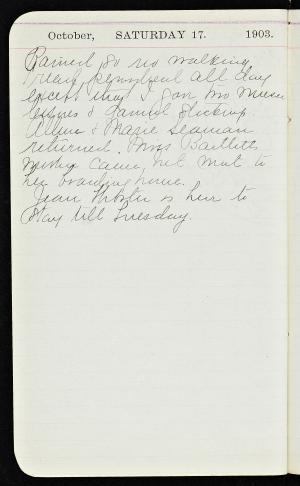 October, SATURDAY 17. 1903.
Rained so no walking
I read all day
except that I gave two music
lessons & darned stockings.
& Marie Seaman
returned. Miss Bartlett's
mother came, but went to
her boarding house.
Jean Webster is here to
stay till Tuesday.